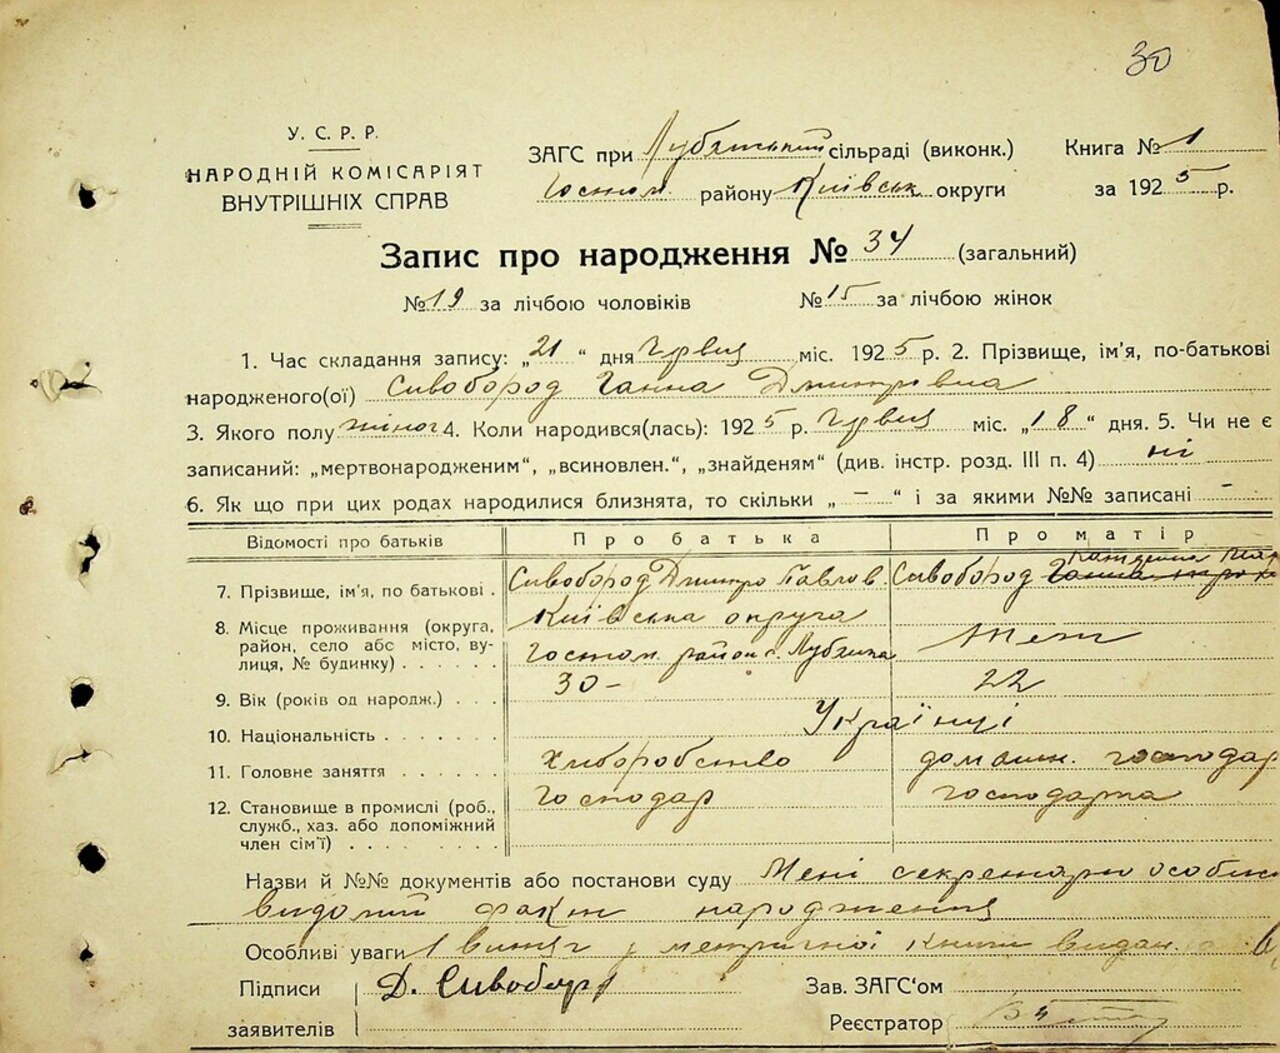 30
У. С. Р. Р.
НАРОДНІЙ КОМІСАРІЯТ
ВНУТРІШНІХ СПРАВ
ЗАГС при Лубянський сільраді (виконк.) Книга № 1
Гостом. району Київськ округи за 1925 р.
Запис про народження № 34 (загальний)
№ 19 за лічбою чоловіків № 15 за лічбою жінок
1. Час складання запису: „21“ дня червця міс. 1925 р. 2. Прізвище, ім’я, по-батькові
народженого(ої) Сивобород Ганна Дмитрівна
3. Якого полу жіног 4. Коли народився(лась): 1925 р. червця міс. „18“ дня. 5. Чи не є
записаний: „мертвонародженим“, „всиновлен.“, „знайденям“ (див. інстр. розд. III п. 4) ні
6. Як що при цих родах народилися близнята, то скільки „ – “ і за якими №№ записані –
Відомості про батьків Про батька Про матір
7. Прізвище, ім’я, по батькові . Сивобород Дмитро Павлов. Сивобород
8. Місце проживання (округа, район, село абс місто, вулиця, № будинку) . . . . . . Київська округа Гостом. район с. Лубянка Теж
9. Вік (років од народж.) . . . 30 – 22
10. Національність . . . . . . . Українці
11. Головне заняття . . . . . . Хліборобство домашн. господар
12. Становище в промислі (роб., служб., хаз. або допоміжний член сім’ї) . . . . . . . . Господар господарка
Назви й №№ документів або постанови суду Мені секретарю особисто
видомий факт народження
Особливі уваги 1 витяг з метричної книги видан.
Підписи Д. Сивобород Зав. ЗАГС‘ом
заявителів Реєстратор